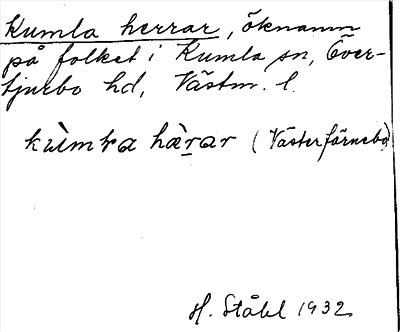 Kumla herrar, öknamn
på folket i Kumla sn, Över-
tjurbo hd, Västm. l.
kùmɫa hæ̀rar (Västerfärnebo)
H. Ståhl 1932